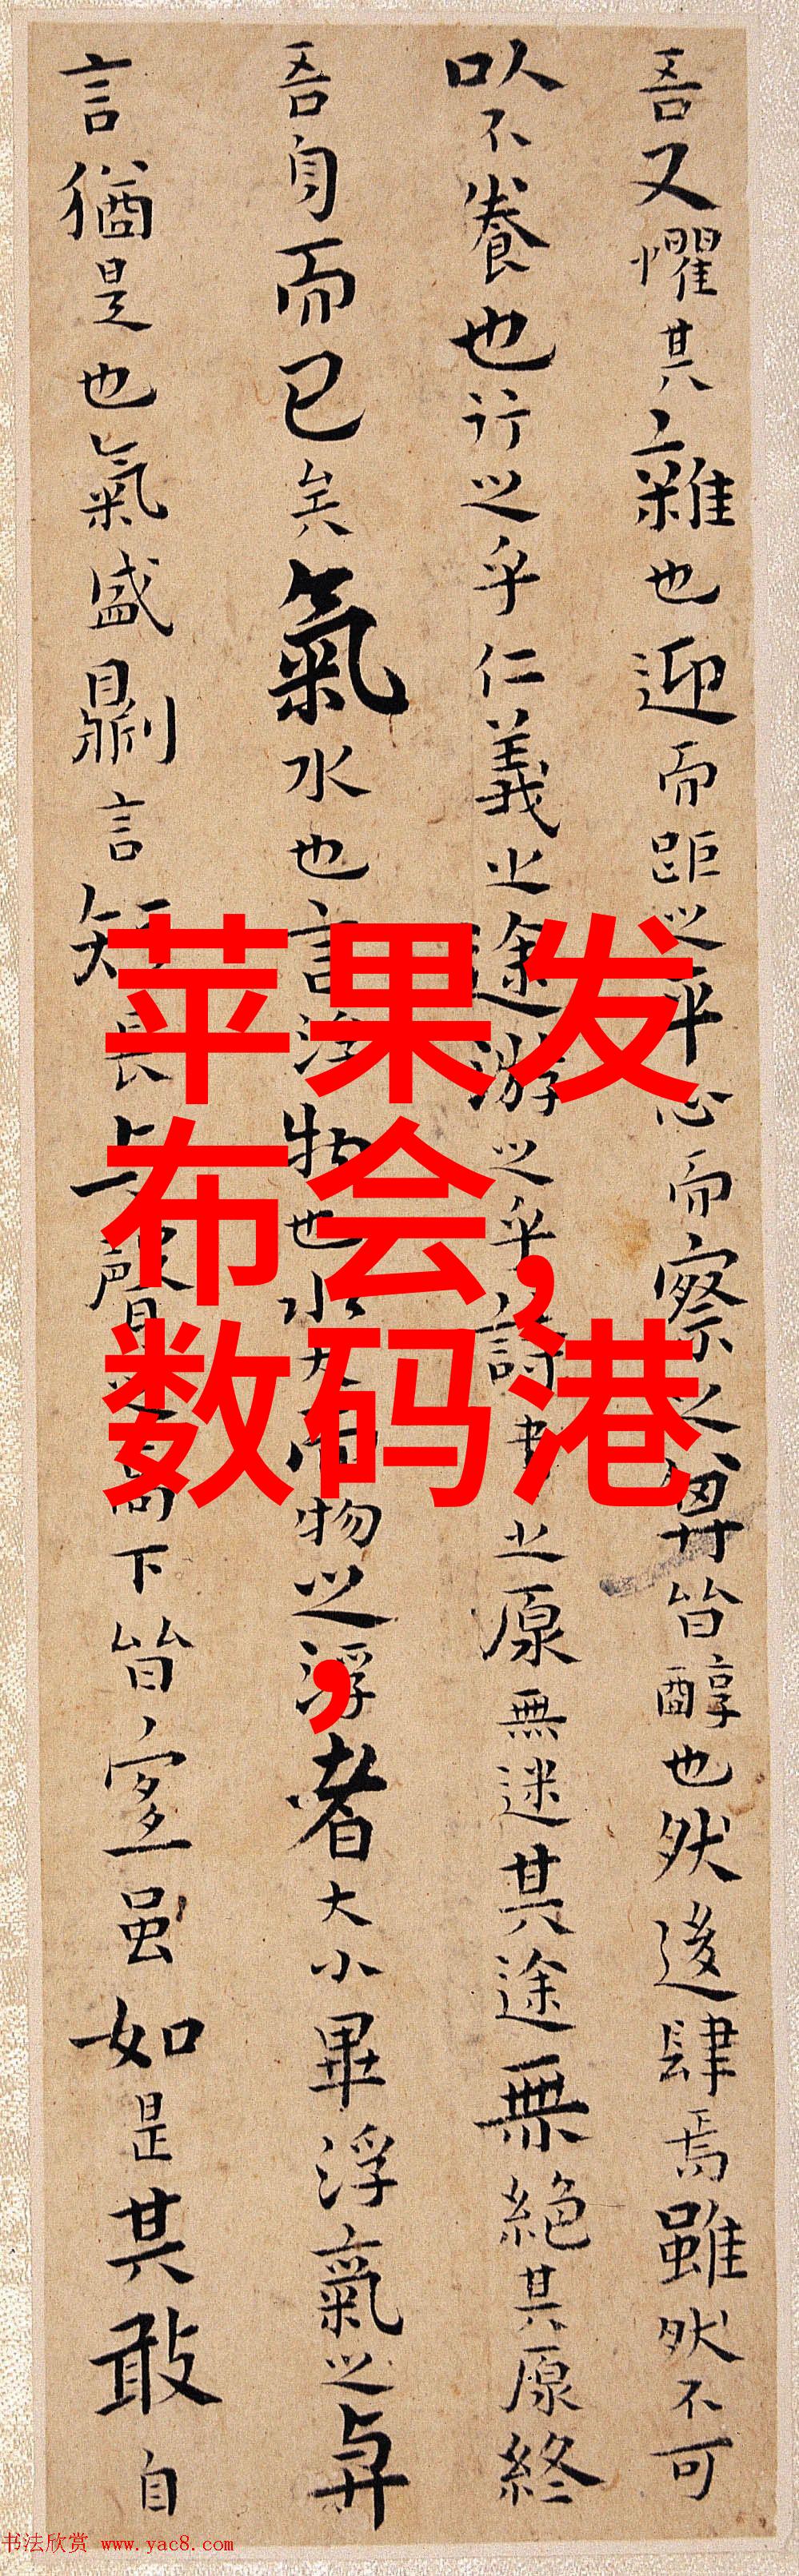 吾又懼其雜也迎而距之平心而察之其皆醇也然後肆焉雖然不可
以不養也行之乎仁義之途游之乎詩書之原無迷其途無絕其原終
吾身而已矣氣水也言浮物也水大而物之浮者大小畢浮氣之與
言猶是也氣盛則言短長與聲之高下皆宜虽如是其敢自
苹果发
布会,
数码港
,
书法欣赏 www.yac8.com